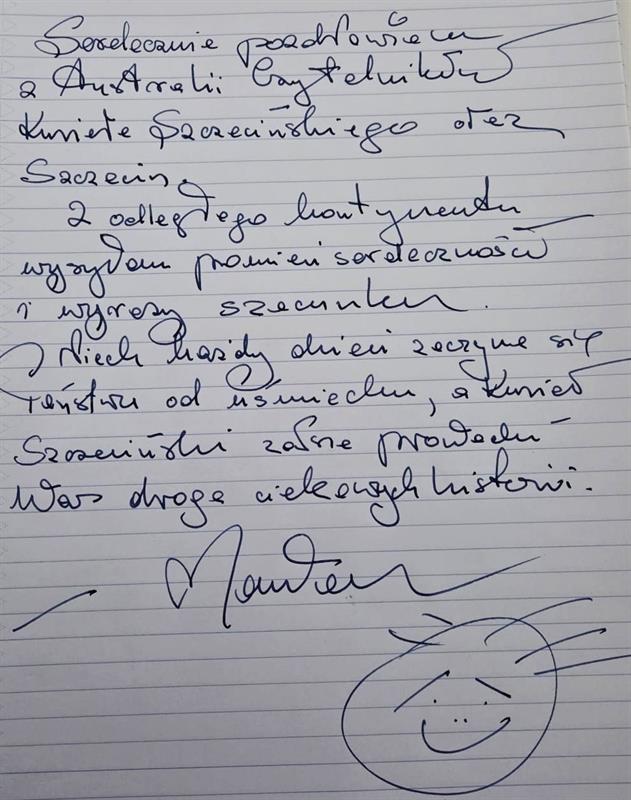 Serdecznie pozdrowiam
z Australii Czytelników
Kuriera Szczecińskiego oraz
Szczecin.
Z odległego kontynentu
wysyłam promień serdeczności
i wyrazy szacunku.
Niech każdy dzień zaczyna się
Państwu od uśmiechu, a Kurier
Szczeciński zawsze prowadzi
Was drogą ciekawych historii.